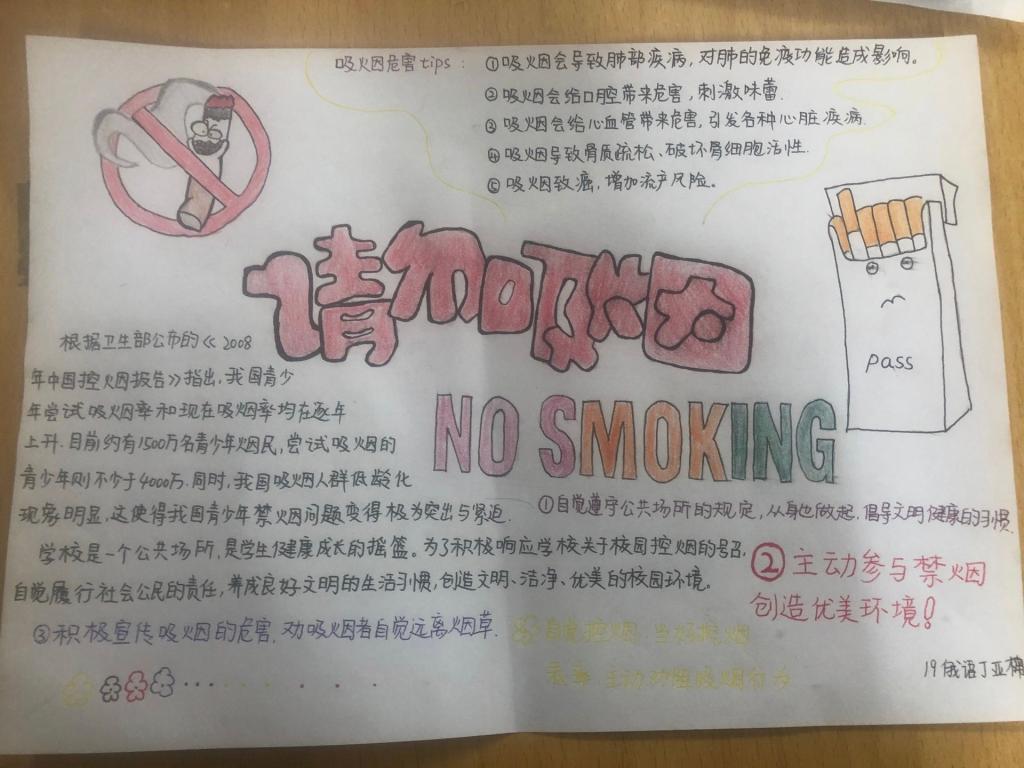 吸烟危害tips：①吸烟会导致肺部疾病，对肺的免疫功能造成影响。
②吸烟会给口腔带来危害，刺激味蕾.
③吸烟会给心血管带来危害，引发各种心脏疾病.
④吸烟导致骨质疏松、破坏骨细胞活性.
⑤吸烟致癌，增加流产风险。
请勿吸烟
NO SMOKING
pass
根据卫生部公布的《2008
年中国控烟报告》指出，我国青少
年尝试吸烟率和现在吸烟率均在逐年
上升.目前约有1500万名青少年烟民，尝试吸烟的
青少年则不少于4000万.同时，我国吸烟人群低龄化
现象明显，这使得我国青少年禁烟问题变得极为突出与紧迫.
学校是一个公共场所，是学生健康成长的摇篮。为了积极响应学校关于校园控烟的号召，
自觉履行社会公民的责任，养成良好文明的生活习惯，创造文明、洁净、优美的校园环境。
①自觉遵守公共场所的规定，从身边做起，倡导文明健康的习惯.
②主动参与禁烟
创造优美环境！
③积极宣传吸烟的危害.劝吸烟者自觉远离烟草.
④自觉控烟.当好控烟
表率.主动劝阻吸烟行为
19俄语丁亚楠